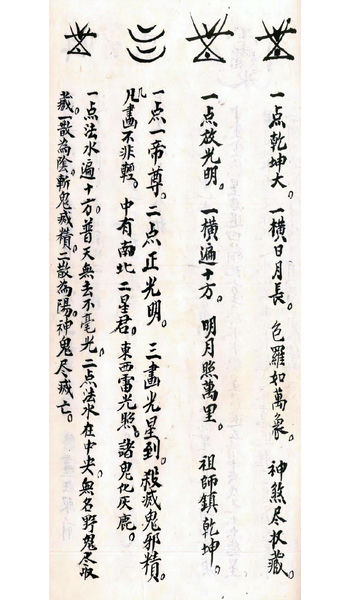 一点乾坤大。一横日月長。包羅如萬象。神煞尽收藏。
一点放光明。一横遍十方。明月照萬里。祖師鎮乾坤。
一点一帝尊。二点正光明。三畫光星到。殺滅鬼邪精。
凡畫不非輕。中有南北二星君。東西雷光照。諸鬼化灰鹿。
一点法水遍十方。普天無去不毫光。二点法水在中央。無名野鬼尽收
藏。一散為陰。斬鬼滅精。二散為陽。神鬼尽滅亡。